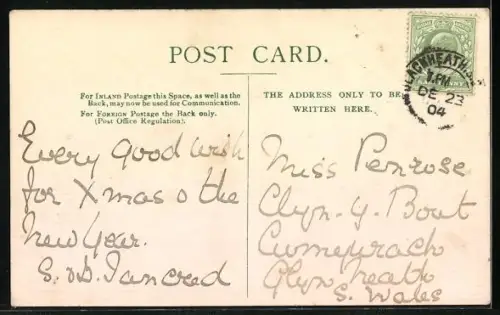 POST CARD.
For INLAND Postage this Space, as well as the
Back, may now be used for Communication.
For FOREIGN Postage the Back only.
(Post Office Regulation).
THE ADDRESS ONLY TO BE
WRITTEN HERE.
BLACKHEATH
1 PM
DE 23
04
Every good wish
for Xmas & the
New Year.
S. & D. Tancred
Miss Penrose
Clyn. y. Bout
Cwmgwrach
Glyn Neath
S. Wales